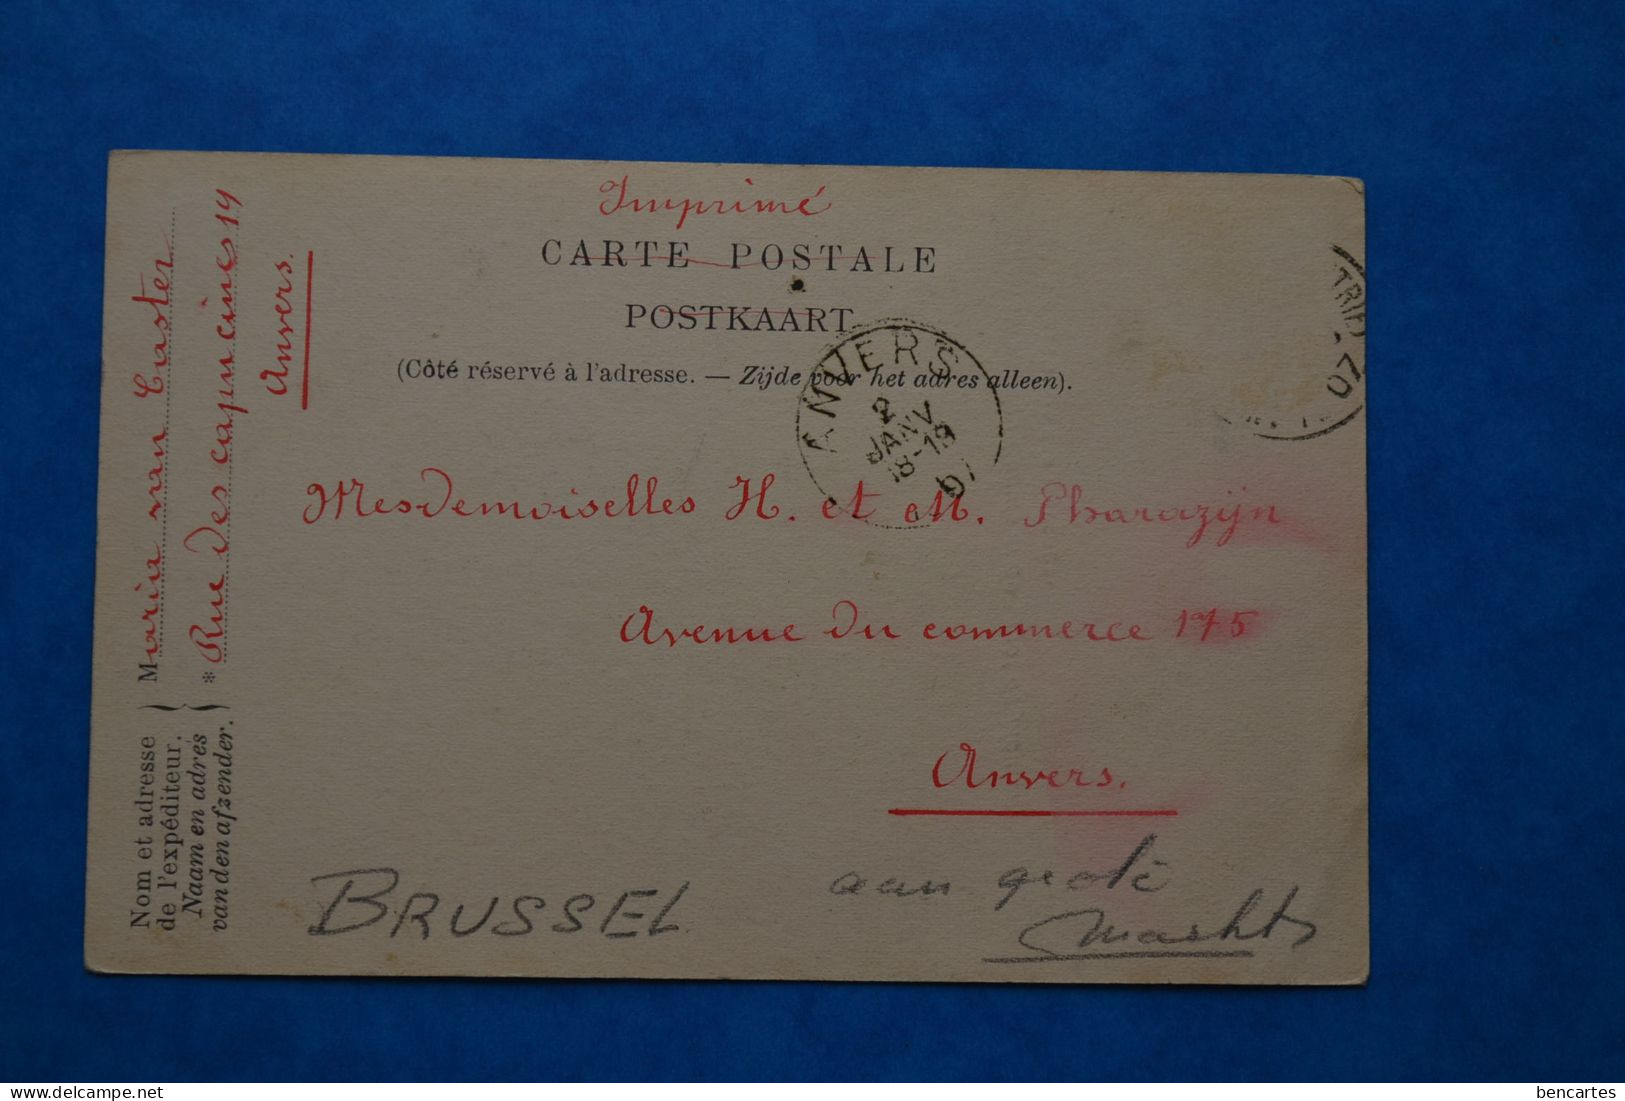 Imprimé
CARTE POSTALE
POSTKAART
(Côté réservé à l'adresse. — Zijde voor het adres alleen).
ANVERS
2
JANV
18-19
07
07
Mesdemoiselles H. et M. Pharazijn
Avenue du commerce 175
Anvers.
Nom et adresse
de l'expéditeur.
Naam en adres
van den afzender.
Maria van Caster
* Rue des capucines 14
Anvers.
BRUSSEL
aan
bencartes